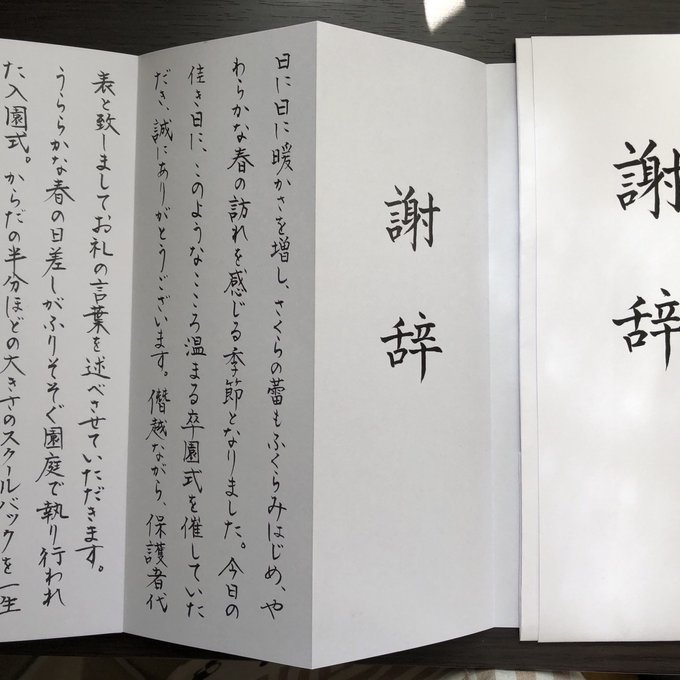 謝辞
謝辞
日に日に暖かさを増し、さくらの蕾もふくらみはじめ、や
わらかな春の訪れを感じる季節となりました。今日の
佳き日に、このようなこころ温まる卒園式を催していた
だき、誠にありがとうございます。僭越ながら、保護者代
表と致しましてお礼の言葉を述べさせていただきます。
うららかな春の日差しがふりそそぐ園庭で執り行われ
た入園式。からだの半分ほどの大きさのスクールバックを一生